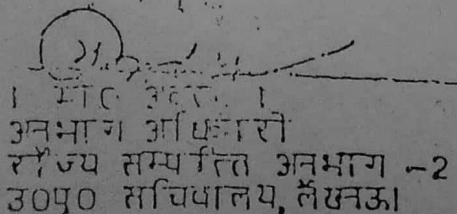 अनुभाग अधिकारी
राज्य सम्पत्ति अनुभाग -2
उ0प्र0 सचिवालय, लखनऊ।